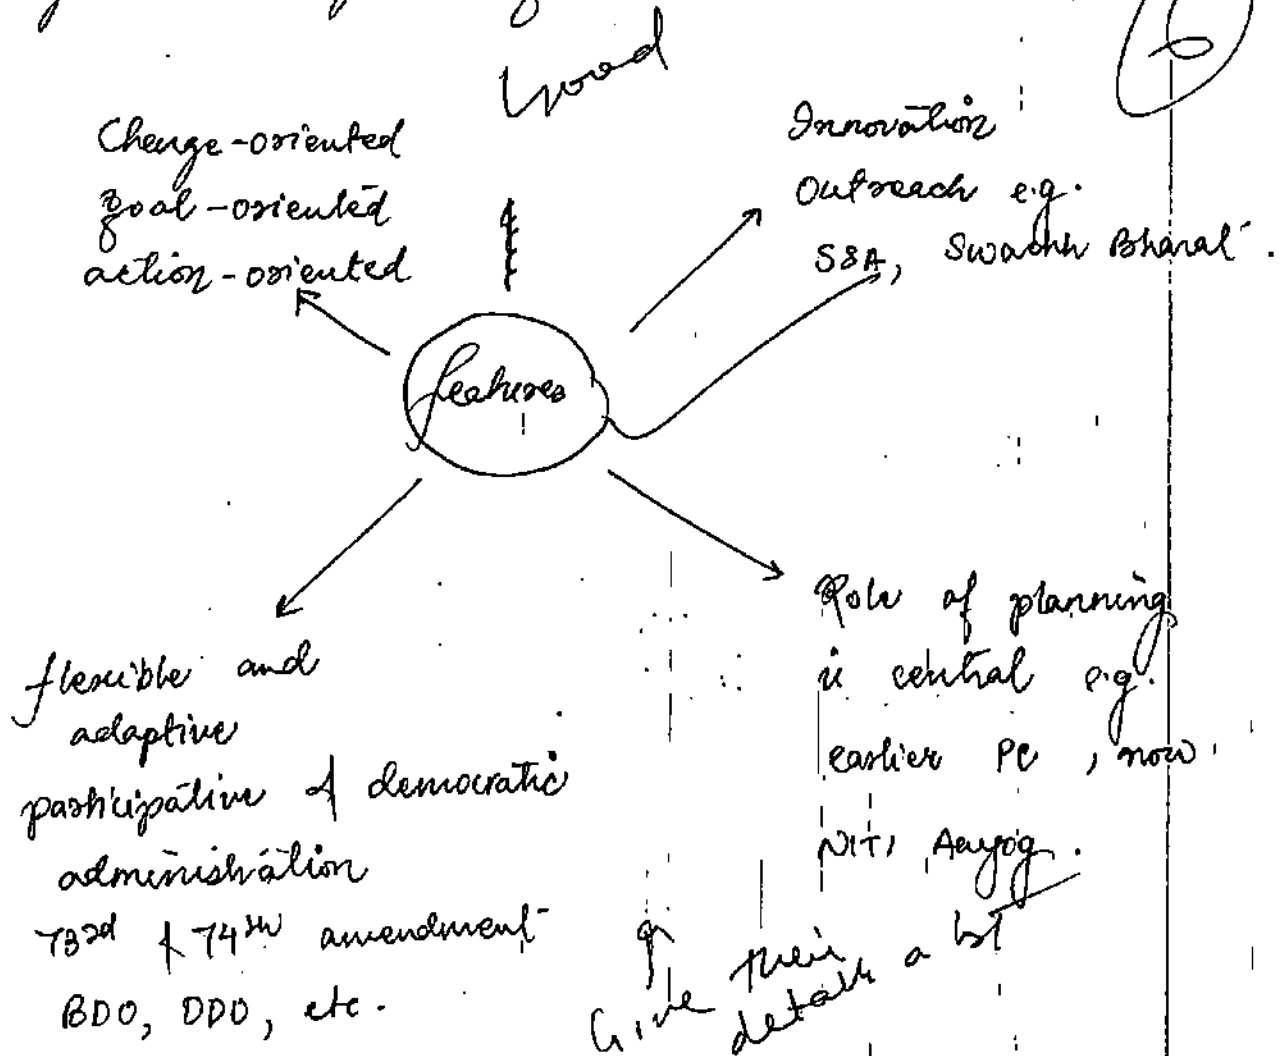 Good
6
Change-oriented
goal-oriented
action-oriented
Innovation
Outreach e.g.
SSA, Swachh Bharat.
features
flexible and
adaptive
participative & democratic
administration
73rd & 74th amendment
BDO, DDO, etc.
Role of planning
is central e.g.
earlier PC, now
NITI Aayog.
Give their
details a bit